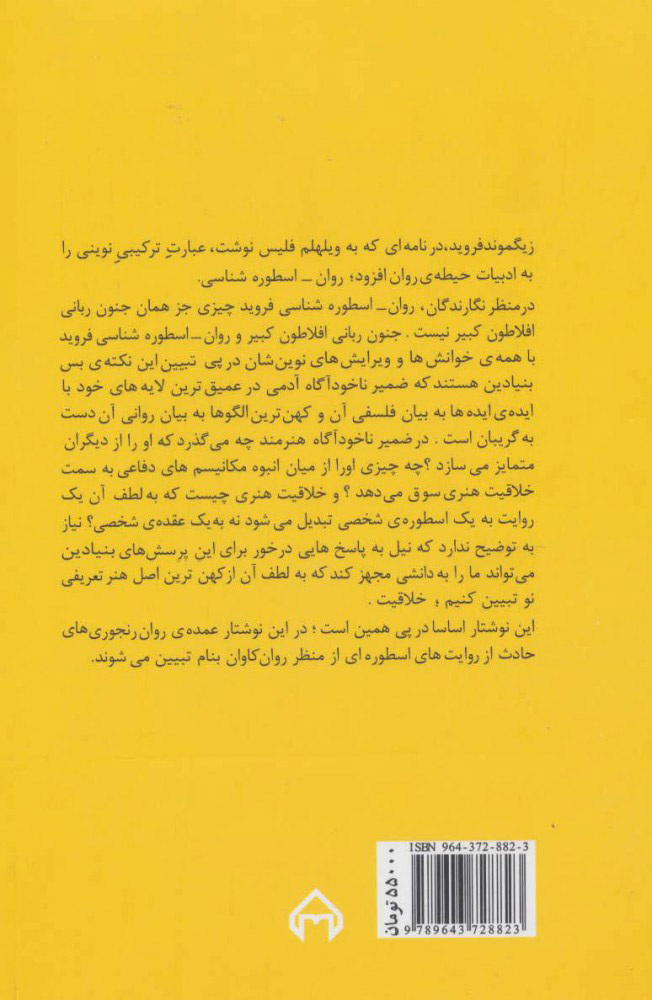 زیگموندفروید،در نامه‌ای که به ویلهلم فلیس نوشت، عبارتِ ترکیبیِ نوینی را
به ادبیات حیطه‌ی روان افزود؛ روان ـ اسطوره شناسی.
درمنظر نگارندگان، روان ـ اسطوره شناسی فروید چیزی جز همان جنون ربانی
افلاطون کبیر نیست . جنون ربانی افلاطون کبیر و روان ـ اسطوره شناسی فروید
با همه‌ی خوانش ها و ویرایش‌های نوین‌شان در پی تبیین این نکته‌ی بس
بنیادین هستند که ضمیر ناخودآگاه آدمی در عمیق ترین لایه های خود با
ایده‌ی ایده ها به بیان فلسفی آن و کهن‌ترین الگوها به بیان روانی آن دست
به گریبان است . در ضمیر ناخودآگاه هنرمند چه می‌گذرد که او را از دیگران
متمایز می سازد ؟چه چیزی اورا از میان انبوه مکانیسم های دفاعی به سمت
خلاقیت هنری سوق می‌دهد ؟ و خلاقیت هنری چیست که به لطف آن یک
روایت به یک اسطوره‌ی شخصی تبدیل می شود نه به‌یک عقده‌ی شخصی؟ نیاز
به توضیح ندارد که نیل به پاسخ هایی درخور برای این پرسش‌های بنیادین
می‌تواند ما را به دانشی مجهز کند که به لطف آن ازکهن ترین اصل هنر تعریفی
نو تبیین کنیم ؛ خلاقیت .
این نوشتار اساسا در پی همین است ؛ در این نوشتار عمده‌ی روان‌رنجوری‌های
حادث از روایت های اسطوره ای از منظر روان‌کاوان بنام تبیین می شوند.
ISBN 964-372-882-3
9 789643 728823
۵۵۰۰۰ تومان